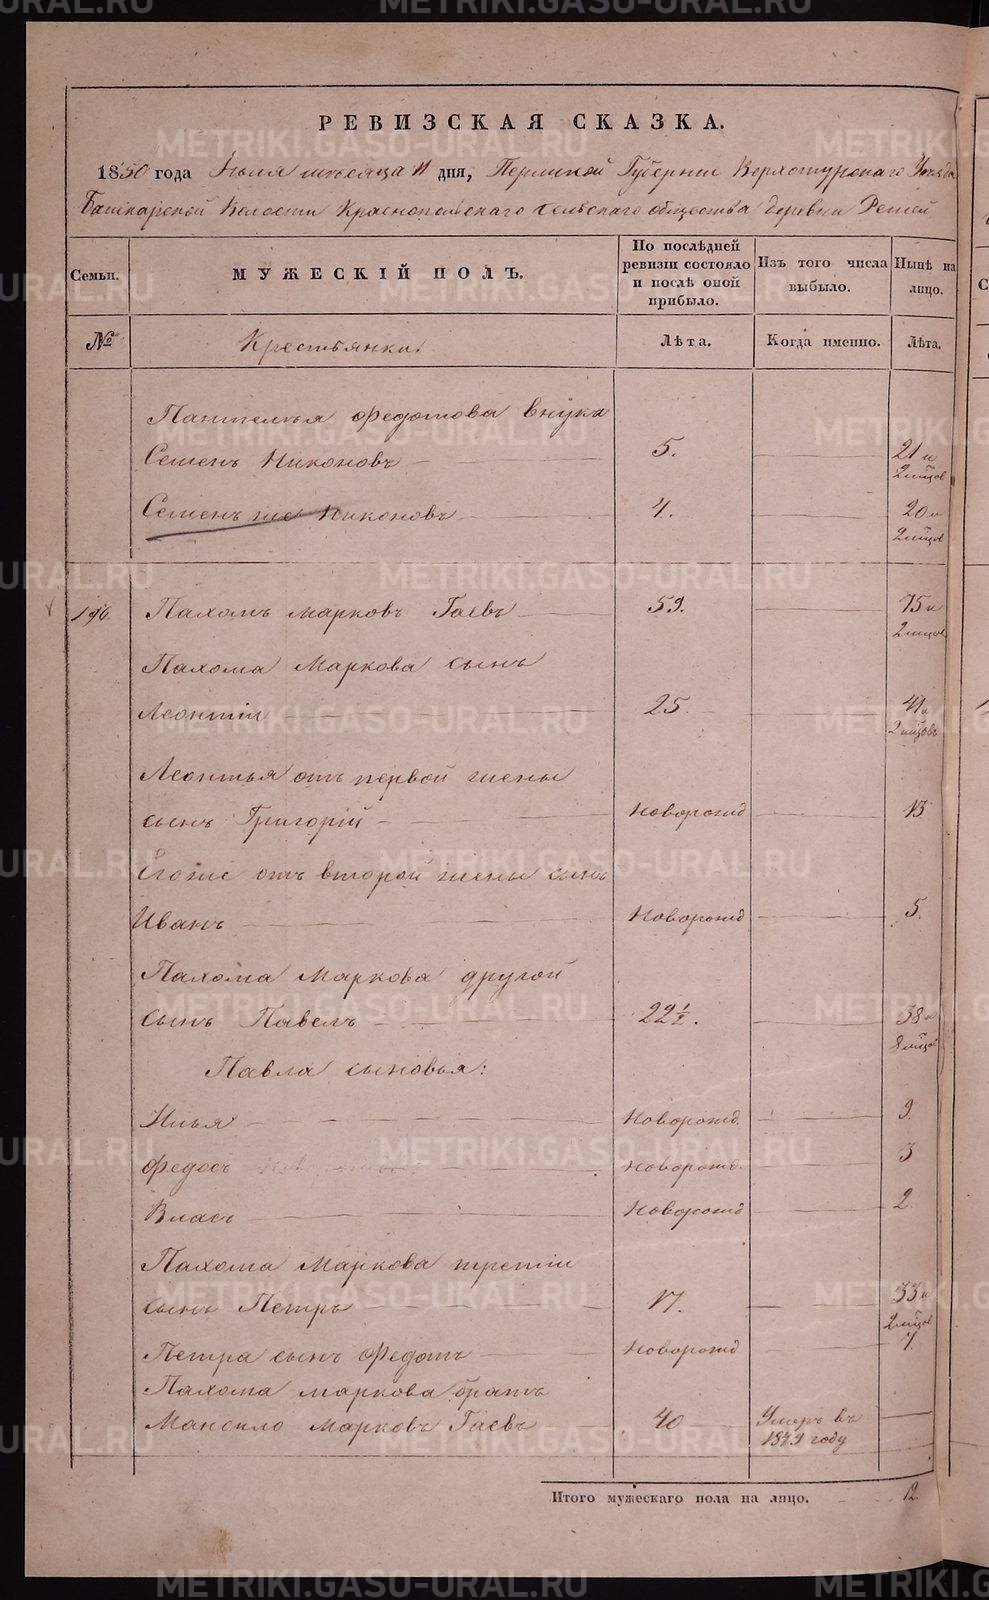 METRIKI.GASO-URAL.RU
РЕВИЗСКАЯ СКАЗКА.
1850 года Июля месяца 11 дня, Пермской Губернии Верхотурскаго Уезда
Башкарской Волости Краснопольскаго сельскаго общества деревни Решей
Семьи.
МУЖЕСКІЙ ПОЛЪ.
По послѣдней ревизіи состояло и послѣ оной прибыло.
Изъ того числа выбыло.
Нынѣ на лицо.
№
Крестьянки:
Лѣта.
Когда именно.
Лѣта.
Пантелѣя Федотова внуки
Семенъ Никоновъ 5. 21 и
2 мцов
Семенъ же Никоновъ 4. 20 и
2 мцов
196. Пахомъ Марковъ Гаевъ 59. 75 и
2 мцов
Пахома Маркова сынъ
Леонтій 25. 41 и
2 мцовъ
Леонтья отъ первой жены
сынъ Григорій новорожд 13
Егоже отъ второй жены сынъ
Иванъ новорожд 5.
Пахома Маркова другой
сынъ Павелъ 22½. 38 и
8 мцов
Павла сыновья:
Илья новорожд. 9.
Федосъ новорожд. 3
Власъ новорожд 2.
Пахома Маркова третій
сынъ Петръ 17. 33 и
2 мцов
Петра сынъ Федотъ новорожд 7.
Пахома Маркова братъ
Мансило Марковъ Гаевъ 40 Умеръ въ
1849 году
Итого мужескаго пола на лицо. 12.